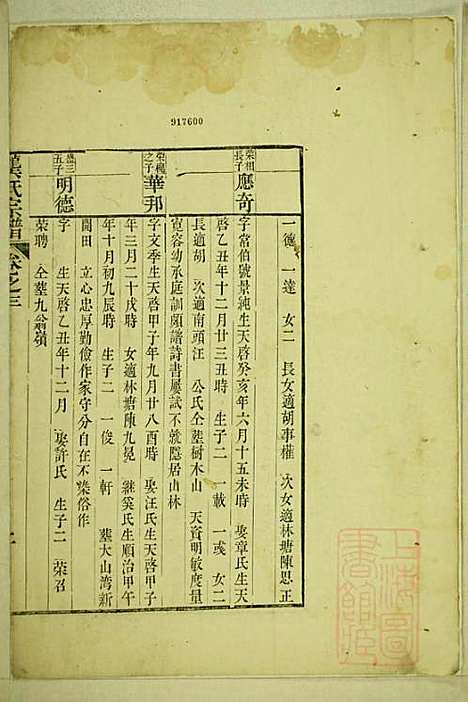 917600
一德 一達 女二 長女適胡事權 次女適林塘陳思正
榮相長子 應奇 字當伯號景純生天啓癸亥年六月十五未時 娶章氏生天
啓乙丑年十二月廿三丑時 生子二 一載 一彧 女二
長適胡 次適南頭汪 公氏仝塟樹木山 天資明敏度量
寬容幼承庭訓頗諳詩書屢試不就隱居山林
之子 華邦 字文季生天啓甲子年九月廿八酉時 娶汪氏生天啓甲子
年三月二十戌時 女適林塘陳九晃 継奚氏生順治甲午
年十月初九辰時 生子二 一俊 一軒 塟大山湾新
開田 立心忠厚勤儉作家守分自在不染俗作
五子 明德 字 生天啓乙丑年十二月 娶許氏 生子二 榮召
榮聘 仝塟九翁嶺
氏宗譜 卷之三
上海圖書館藏